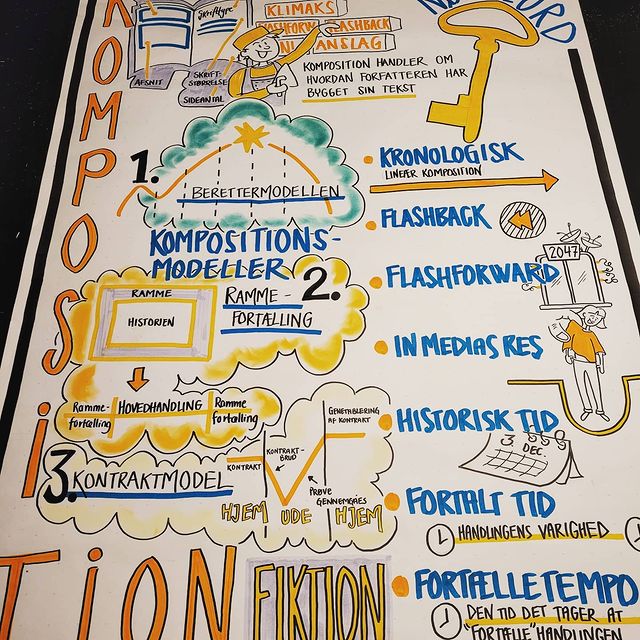 KOMPOSi
TiON
Skrifttype
AFSNIT
SKRIFT-
STØRRELSE
SIDEANTAL
KLIMAKS
FLASHBACK
ANSLAG
KOMPOSITION HANDLER OM
HVORDAN FORFATTEREN HAR
BYGGET SIN TEKST
ORD
1.
BERETTERMODELLEN
KOMPOSITIONS-
MODELLER
2.
RAMME
HISTORIEN
RAMME-
FORTÆLLING
Ramme-
fortælling
HOVEDHANDLING
Ramme
fortælling
3.
KONTRAKTMODEL
KONTRAKT
KONTRAKT-
BRUD
GENETABLERING
AF KONTRAKT
PRØVE
GENNEMGÅES
HJEM
UDE
HJEM
FIKTION
KRONOLOGISK
LINEÆR KOMPOSITION
FLASHBACK
FLASHFORWARD
2047
IN MEDIAS RES
HISTORISK TID
3
DEC.
FORTALT TID
HANDLINGENS VARIGHED
FORTÆLLETEMPO
DEN TID DET TAGER AT
"FORTÆLLE" HANDLINGEN